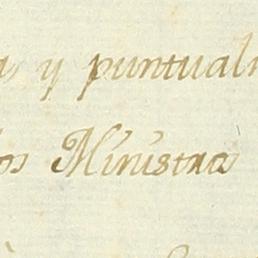 y puntual
los Ministra